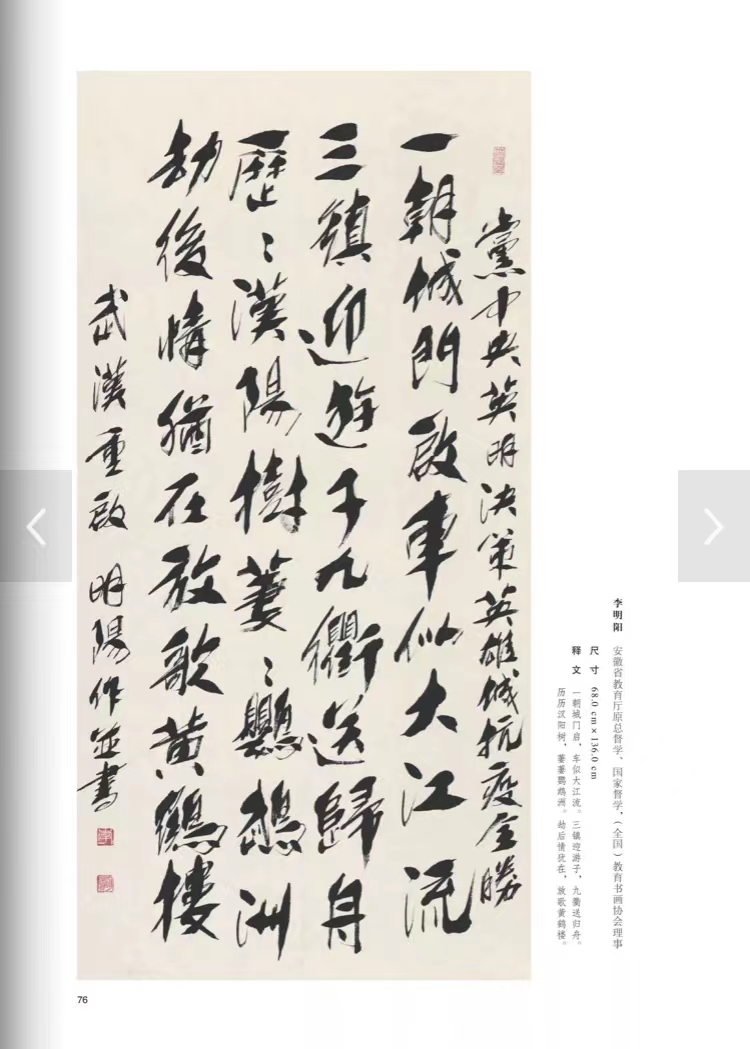 黨中央英明決策英雄城抗疫全勝
一朝城門啟車似大江流
三鎮迎遊子九衢送歸舟
歷〻漢陽樹萋〻鸚鵡洲
劫後情猶在放歌黃鶴樓
武漢重啟 明陽作並書
李明阳 安徽省教育厅原总督学、国家督学，（全国）教育书画协会理事
尺寸 68.0 cm×136.0 cm
释文 一朝城门启，车似大江流。三镇迎游子，九衢送归舟。
历历汉阳树，萋萋鹦鹉洲。劫后情犹在，放歌黄鹤楼。
76